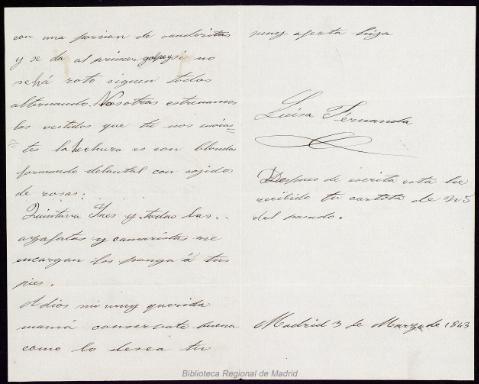 con una porcion de
y se da al primer golpe, si no
se há roto siguen todos
alternando. Nosotras estrenamos
los vestidos que tu nos envias=
=tes la hechura es con blonda
formando delantal con cojidos
de rosas.
Quintana Ynes y todas las
azafatas y camaristas me
encargan las ponga á tus
pies.
A dios mi muy querida
mamá consérvate buena
como lo desea tu
muy afecta hija
Luisa Fernanda
Despues de escrita esta he
recibido tu cartita de 25
del pasado.
Madrid 3 de Marzo de 1843
Biblioteca Regional de Madrid